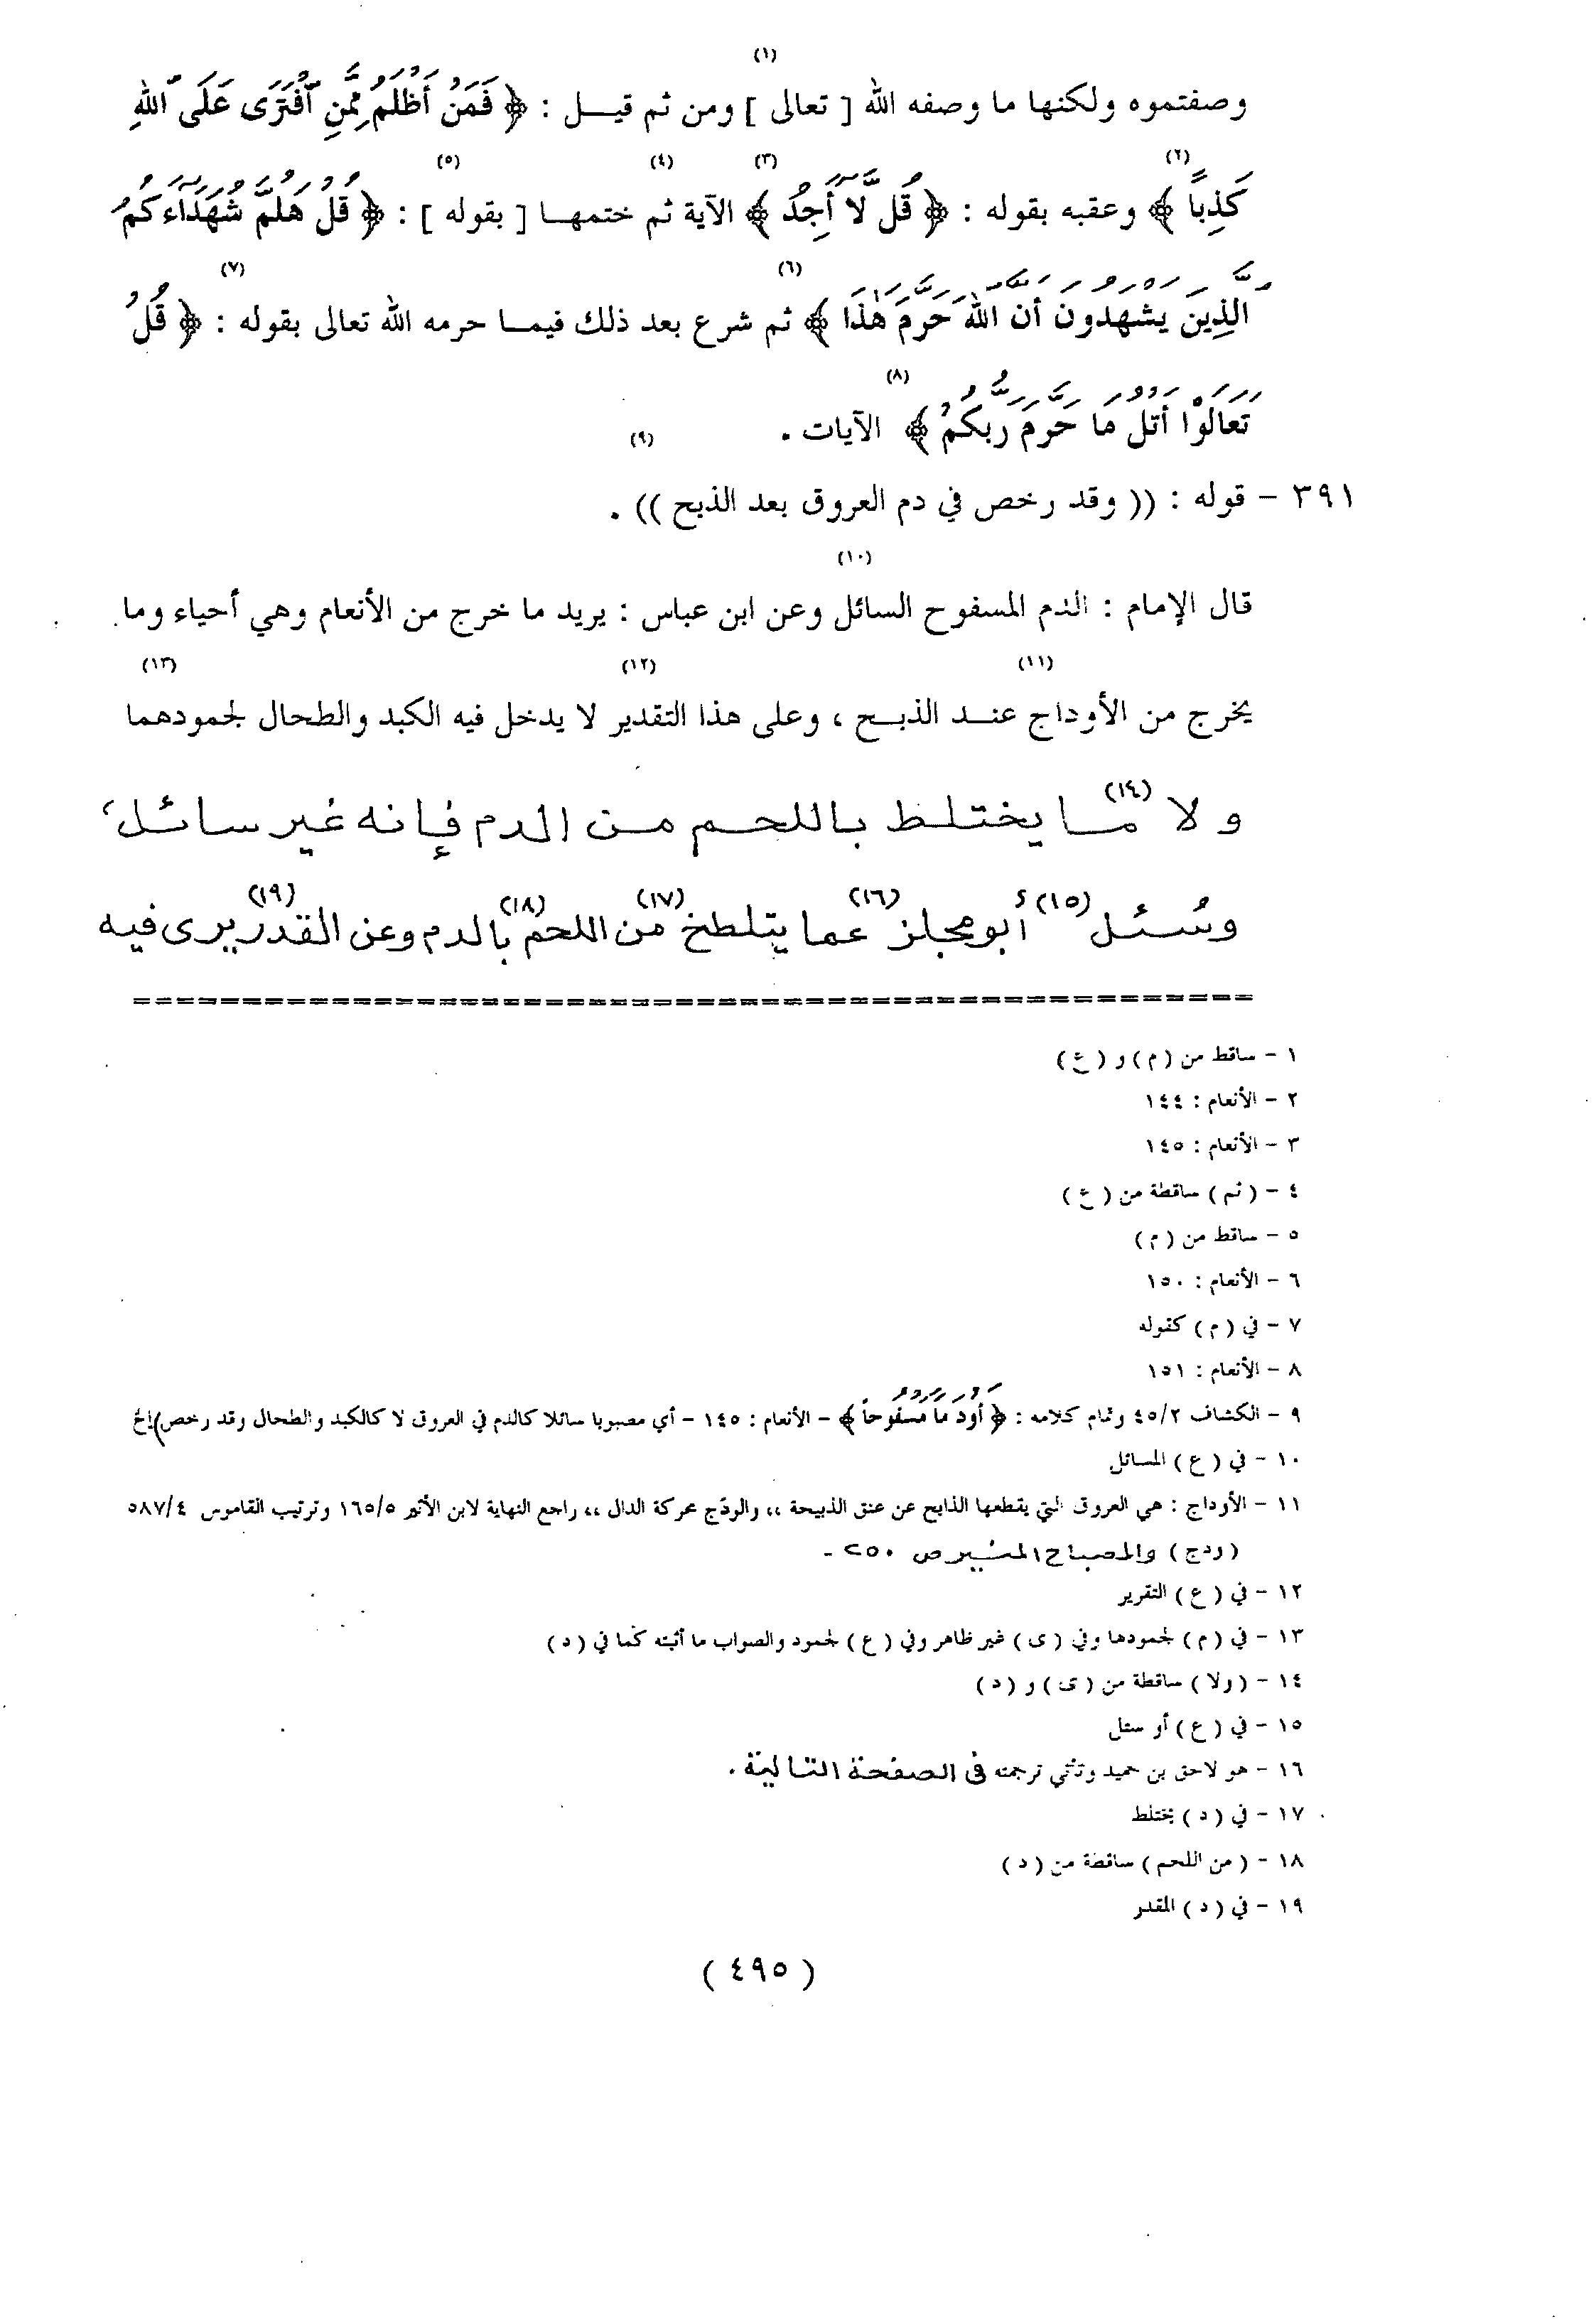 (١)
وصفتموه ولكنها ما وصفه الله [ تعالى ] ومن ثم قيل : ﴿ فَمَنْ أَظْلَمُ مِمَّنِ ٱفْتَرَى عَلَى ٱللهِ
(٢) (٣) (٤) (٥)
كَذِبًا ﴾ وعقبه بقوله : ﴿ قُل لَّآ أَجِدُ ﴾ الآية ثم ختمها [ بقوله ] : ﴿ قُلْ هَلُمَّ شُهَدَآءَكُمُ
(٦) (٧)
الَّذِينَ يَشْهَدُونَ أَنَّ اللهَ حَرَّمَ هَٰذَا ﴾ ثم شرع بعد ذلك فيما حرمه الله تعالى بقوله : ﴿ قُلْ
(٨)
تَعَالَوْا أَتْلُ مَا حَرَّمَ رَبُّكُمْ ﴾ الآيات .
(٩)
٣٩١ - قوله : (( وقد رخص في دم العروق بعد الذبح )) .
(١٠)
قال الإمام : الدم المسفوح السائل وعن ابن عباس : يريد ما خرج من الأنعام وهي أحياء وما
(١١) (١٢) (١٣)
يخرج من الأوداج عند الذبح ، وعلى هذا التقدير لا يدخل فيه الكبد والطحال لجمودهما
ولا (١٤) ما يختلط باللحم من الدم فإنه غير سائل،
وسُئل (١٥) أبو مجلز (١٦) عما يتلطخ (١٧) من اللحم (١٨) بالدم وعن القدر (١٩) يرى فيه
١ - ساقط من ( م ) و ( ع )
٢ - الأنعام : ١٤٤
٣ - الأنعام : ١٤٥
٤ - ( ثم ) ساقطة من ( ع )
٥ - ساقط من ( م )
٦ - الأنعام : ١٥٠
٧ - في ( م ) كقوله
٨ - الأنعام : ١٥١
٩ - الكشاف ٤٥/٢ وتمام كلامه : ﴿ أَوْ دَمًا مَّسْفُوحًا ﴾ - الأنعام : ١٤٥ - أي مصبوبا سائلا كالدم في العروق لا كالكبد والطحال وقد رخص) إلخ
١٠ - في ( ع ) المسائل
١١ - الأوداج : هي العروق التي يقطعها الذابح عن عنق الذبيحة ،، والودج محركة الدال ،، راجع النهاية لابن الأثير ١٦٥/٥ وترتيب القاموس ٥٨٧/٤
( ودج ) والمصباح المنير ص ٢٥٠ -
١٢ - في ( ع ) التقرير
١٣ - في ( م ) لجمودها وفي ( ى ) غير ظاهر وفي ( ع ) لجمود والصواب ما أثبته كما في ( د )
١٤ - ( ولا ) ساقطة من ( ى ) و ( د )
١٥ - في ( ع ) أو سئل
١٦ - هو لاحق بن حميد وتأتي ترجمته في الصفحة التالية .
١٧ - في ( د ) يختلط
١٨ - ( من اللحم ) ساقطة من ( د )
١٩ - في ( د ) المقدر
( ٤٩٥ )